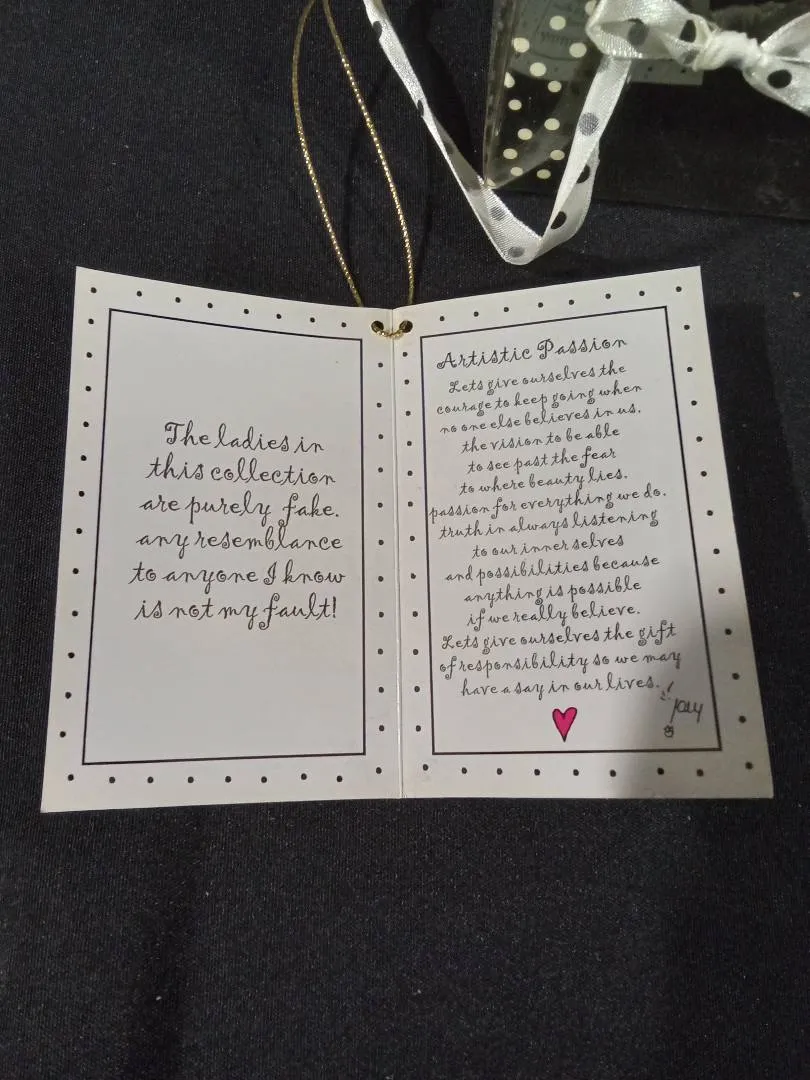 The ladies in
this collection
are purely fake.
any resemblance
to anyone I know
is not my fault!
Artistic Passion
Lets give ourselves the
courage to keep going when
no one else believes in us.
the vision to be able
to see past the fear
to where beauty lies.
passion for everything we do.
truth in always listening
to our inner selves
and possibilities because
anything is possible
if we really believe.
Lets give ourselves the gift
of responsibility so we may
have a say in our lives.